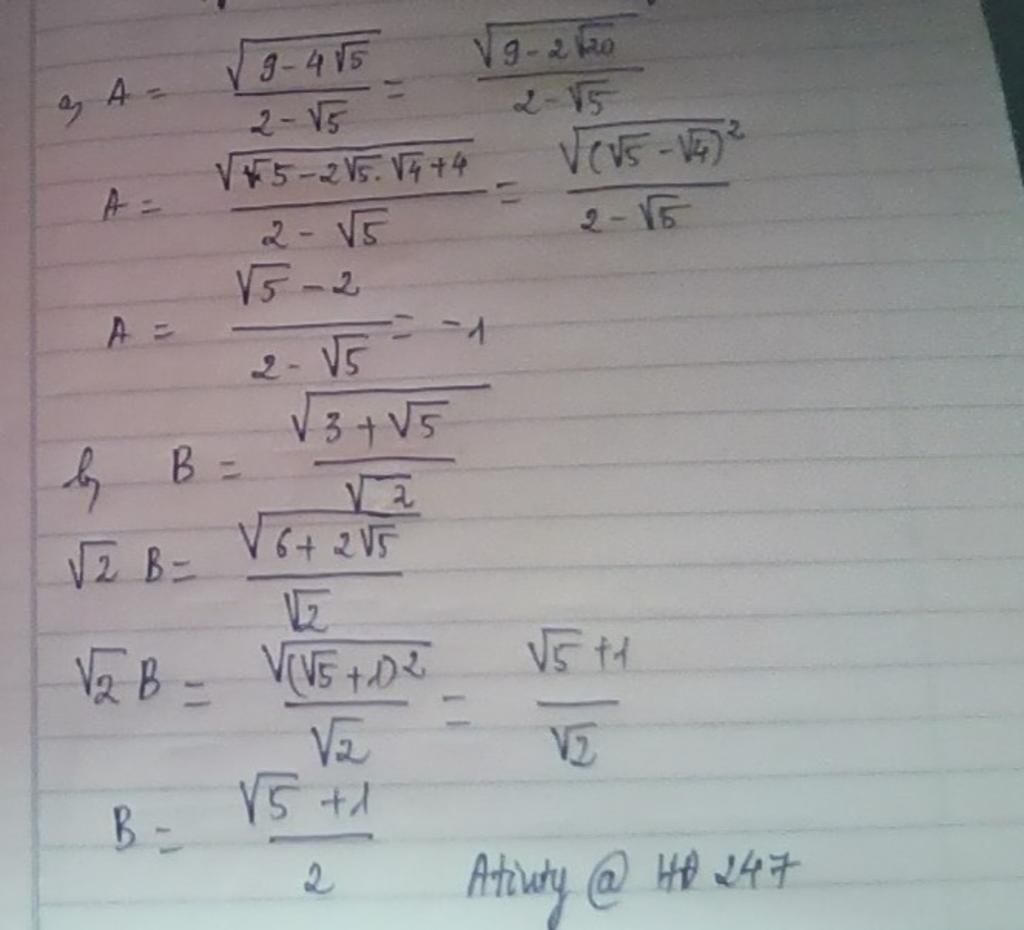 a, A = √(9 - 4√5) / (2 - √5) = √(9 - 2√20) / (2 - √5)
A = √(5 - 2√5.√4 + 4) / (2 - √5) = √((√5 - √4)²) / (2 - √5)
A = (√5 - 2) / (2 - √5) = -1
b, B = √(3 + √5) / √2
√2 B = √(6 + 2√5) / √2
√2 B = √((√5 + 1)²) / √2 = (√5 + 1) / √2
B = (√5 + 1) / 2
@ HD 247